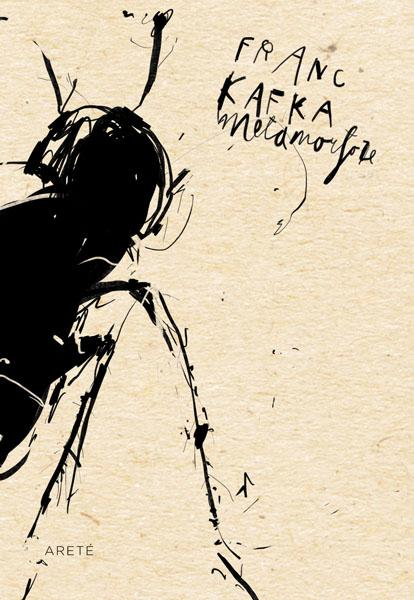 FRANC
KAFKA
Metamorfoze
ARETÉ